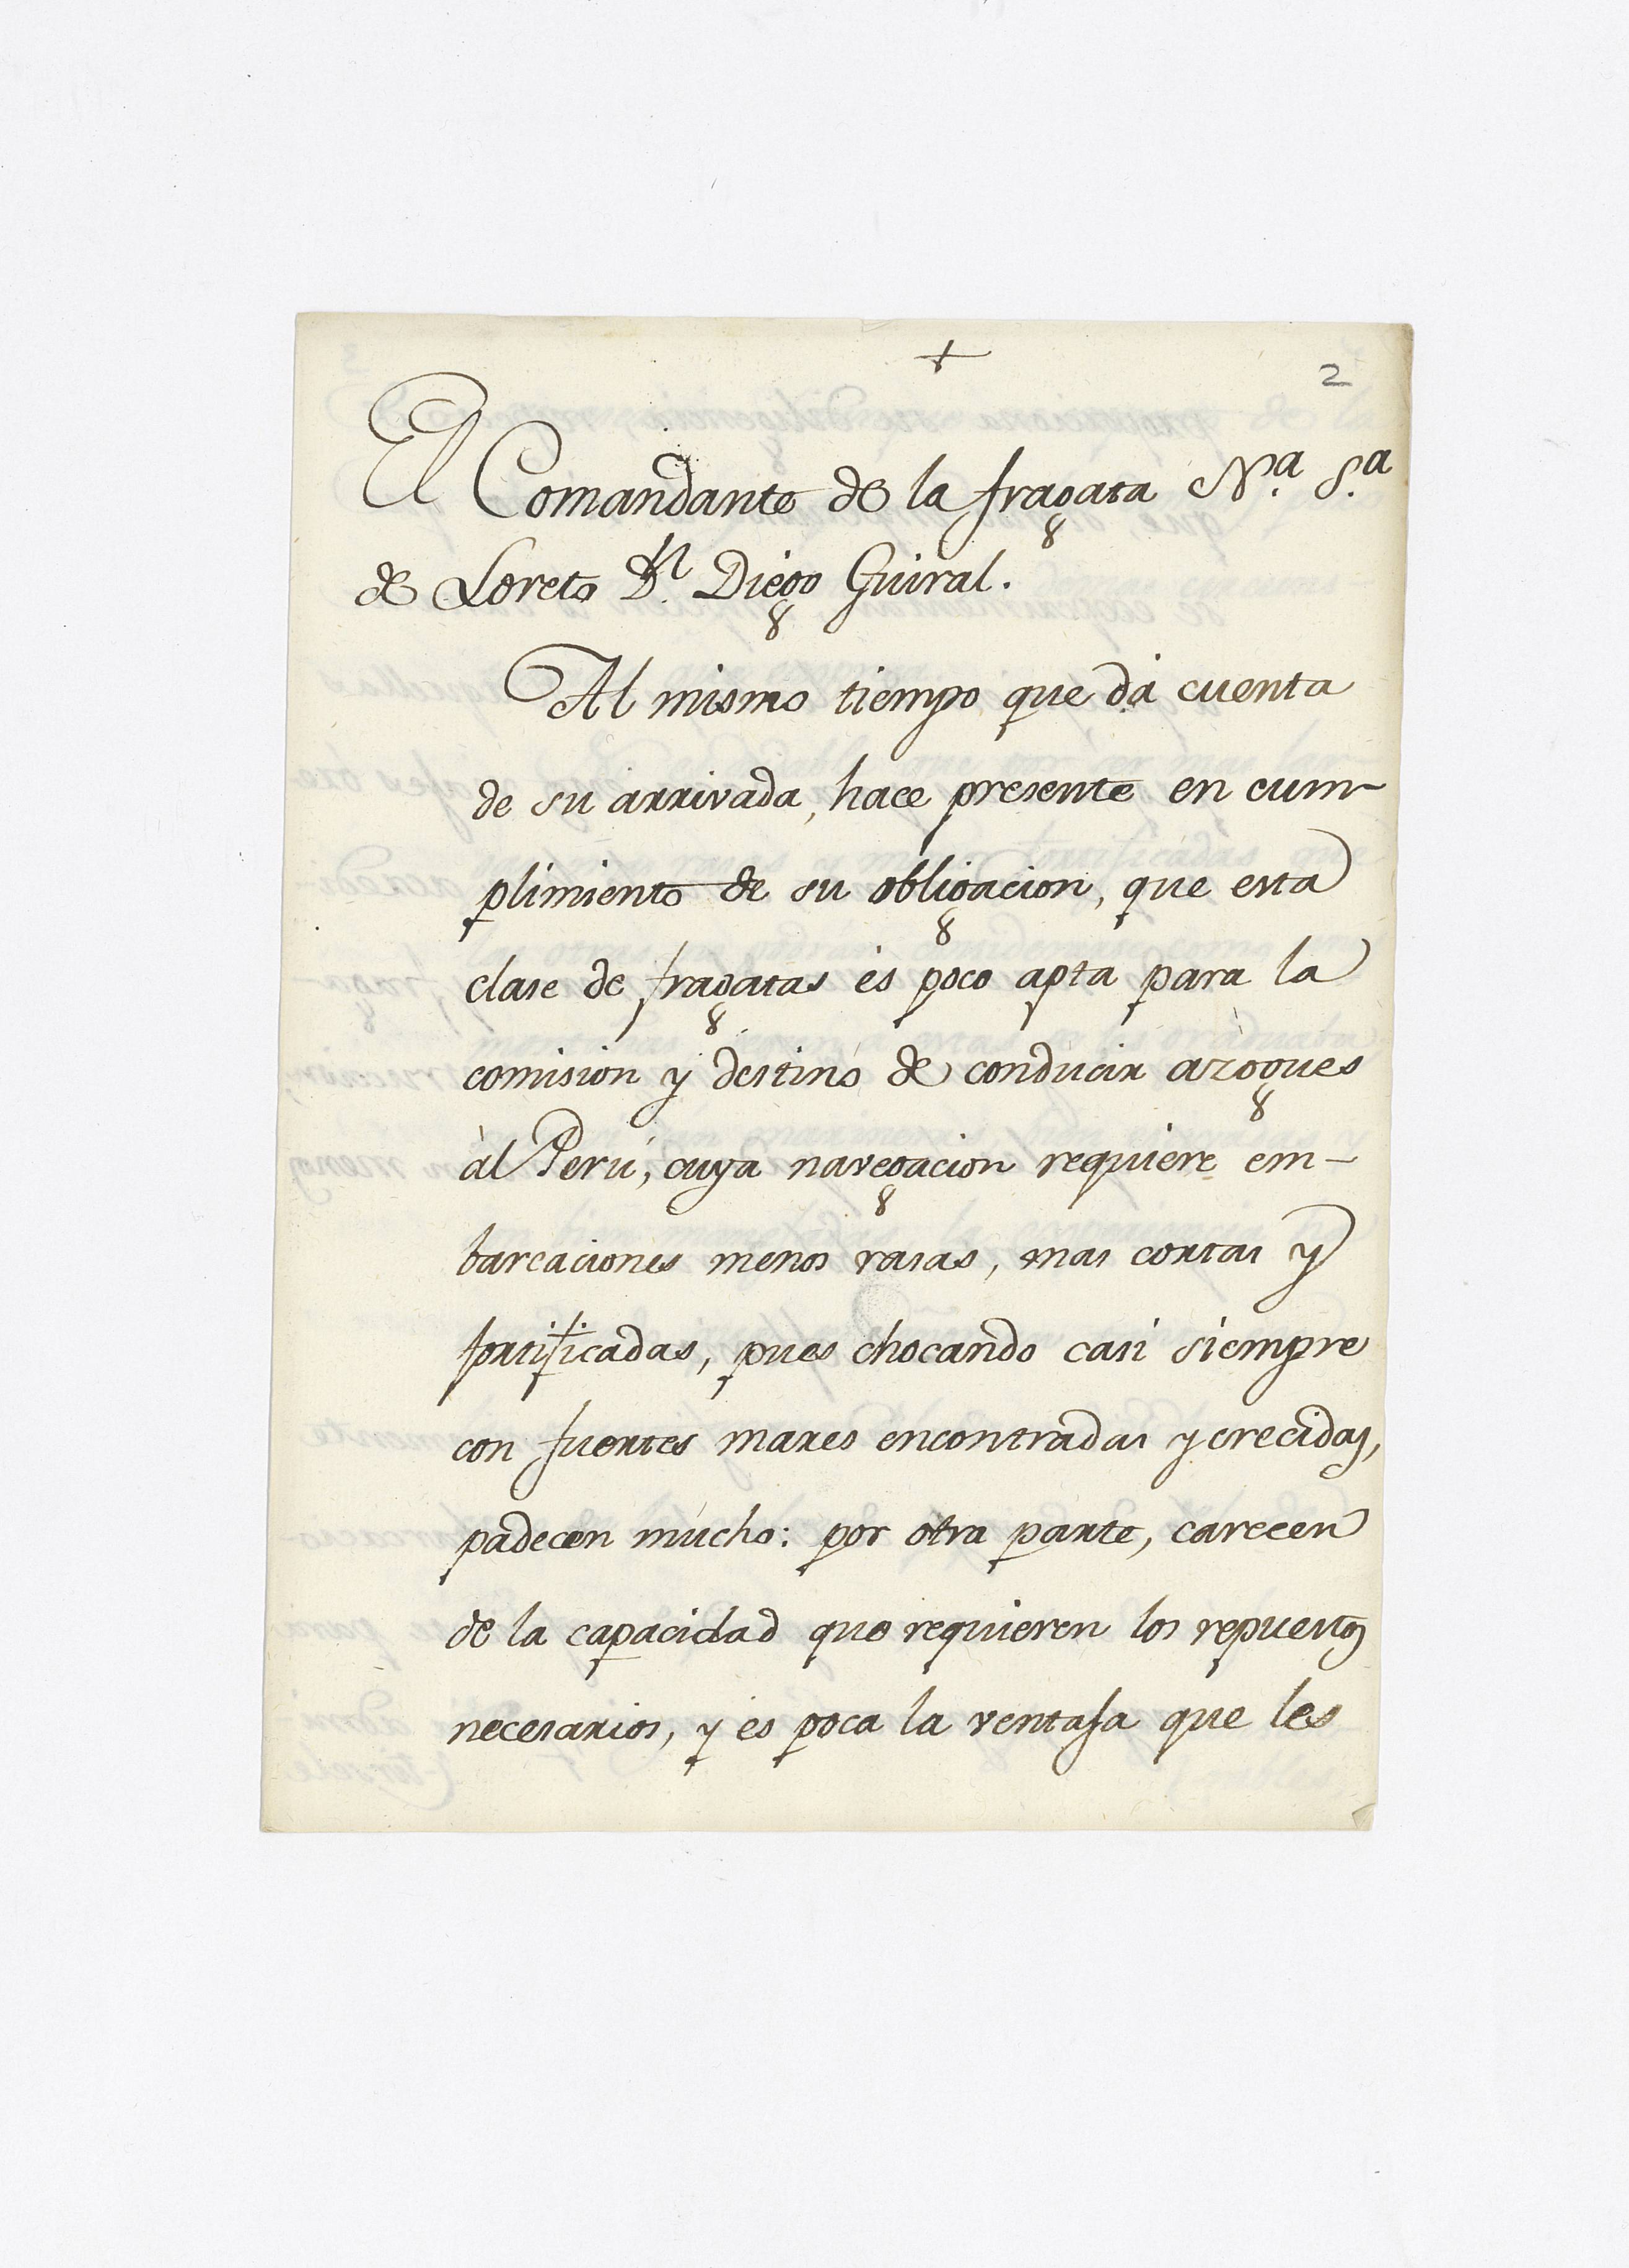 +
2
El Comandante de la fragata N.ª S.ª
de Loreto D.n Diego Guiral.
Al mismo tiempo que dá cuenta
de su arrivada, hace presente en cum-
plimiento de su obligacion, que esta
clase de fragatas és poco apta para la
comision y destino de conducir azogues
àl Perú, cuya navegacion requiere em-
barcaciones menos rasas, mas cortas y
fortificadas, pues chocando casi siempre
con fuertes mares encontradas y crecidas,
padecen mucho: por otra parte, carecen
de la capacidad que requieren los repuestos
necesarios, y és poca la ventaja que les